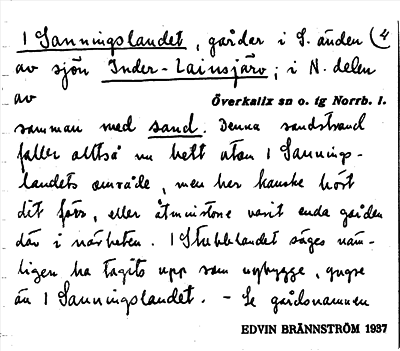 1 Sanningslandet, gårder i S. änden (4
av sjön Inder-Lainsjärv; i N. delen
av Överkalix sn o. tg Norrb. l.
samman med sand. Denna sandstrand
faller alltså nu helt utom 1 Sannings-
landets område, men her kanske hört
dit förr, eller åtminstone varit enda gården
där i närheten. 1 Stubblandet säges näm-
ligen ha tagits upp som nybygge, yngre
än 1 Sanningslandet. - Se gårdsnamnen
EDVIN BRÄNNSTRÖM 1937